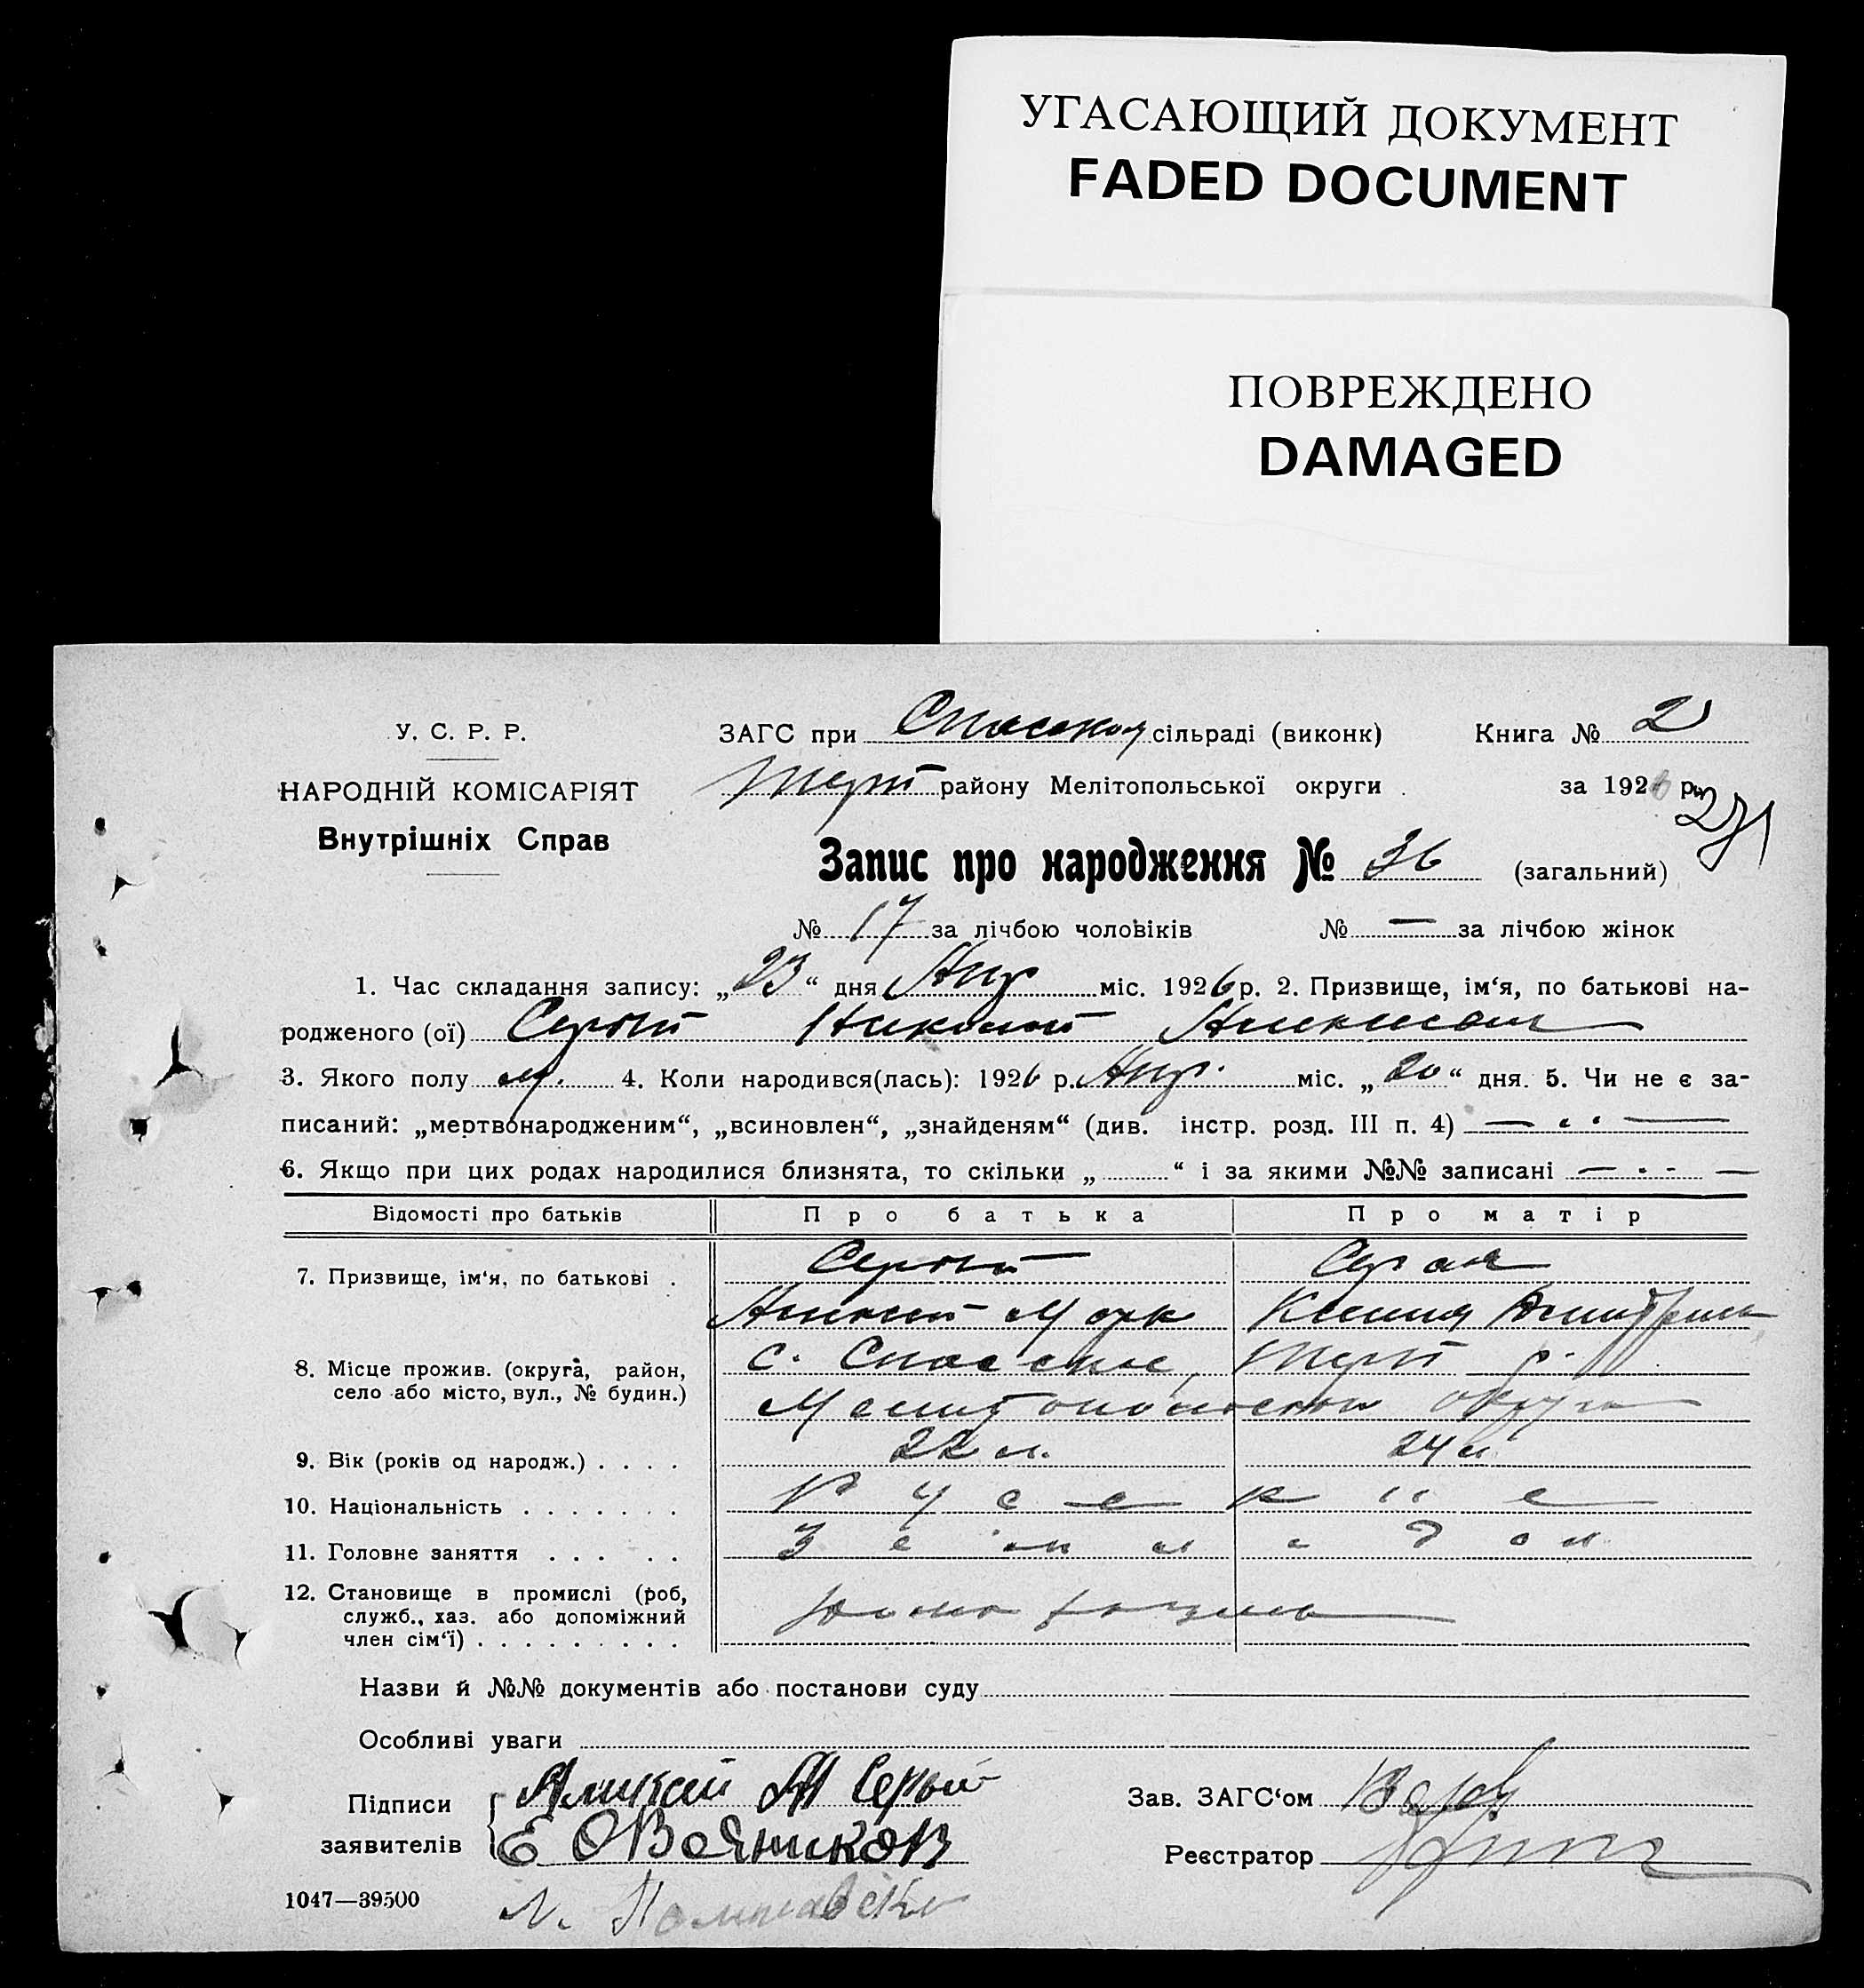 УГАСАЮЩИЙ ДОКУМЕНТ
FADED DOCUMENT
ПОВРЕЖДЕНО
DAMAGED
У. С. Р. Р.
НАРОДНІЙ КОМІСАРІЯТ
Внутрішніх Справ
ЗАГС при Спаской сільраді (виконк) Книга № 2
району Мелітопольської округи за 1926 р.
271
Запис про народження № 36 (загальний)
№ 17 за лічбою чоловіків № — за лічбою жінок
1. Час складання запису: „23“ дня Апр міс. 1926 р. 2. Призвище, ім‘я, по батькові на-
родженого (ої) Серый Николай
3. Якого полу м. 4. Коли народився(лась): 1926 р. Апр. міс. „20“ дня. 5. Чи не є за-
писаний: „мертвонародженим“, „всиновлен“, „знайденям“ (див. інстр. розд. III п. 4) —
6. Якщо при цих родах народилися близнята, то скільки „ “ і за якими №№ записані —
Відомості про батьків Про батька Про матір
7. Призвище, ім‘я, по батькові . Серый Серая
Ксения Дмитрие
8. Місце прожив. (округа, район, село або місто, вул., № будин.) с. Спасское, р.
Мелитопольской округи
9. Вік (років од народж.) . . . . 22 л. 24 л
10. Національність . . . . . . . Русские
11. Головне заняття . . . . .
12. Становище в промислі (роб, служб., хаз. або допоміжний член сім‘ї) . . . . . . . . .
Назви й №№ документів або постанови суду
Особливі уваги
Підписи заявителів Серый
Зав. ЗАГС‘ом
Реєстратор
1047—39500